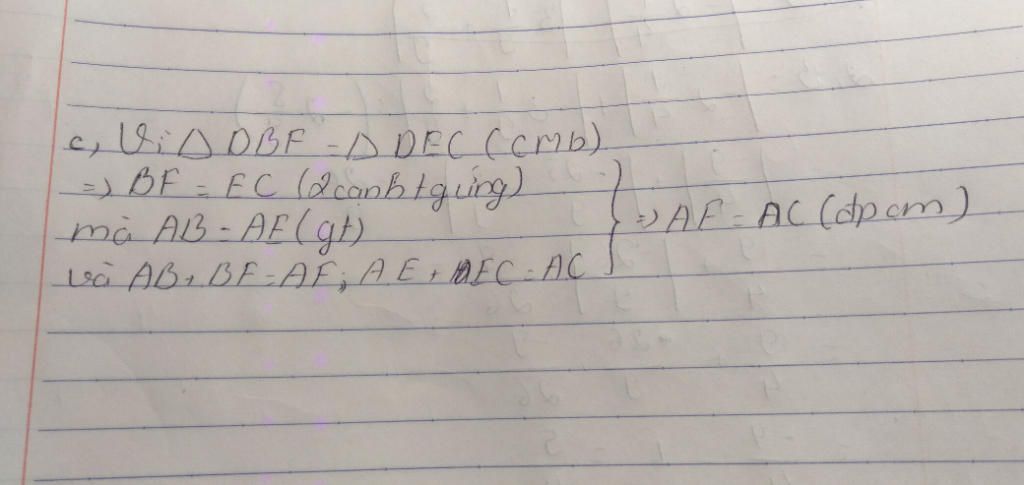 c, Vì Δ DBF = Δ DEC (cmb)
=> BF = EC (2 cạnh tg ứng)
mà AB = AE (gt)
và AB + BF = AF; AE + EC = AC
=> AF = AC (đpcm)